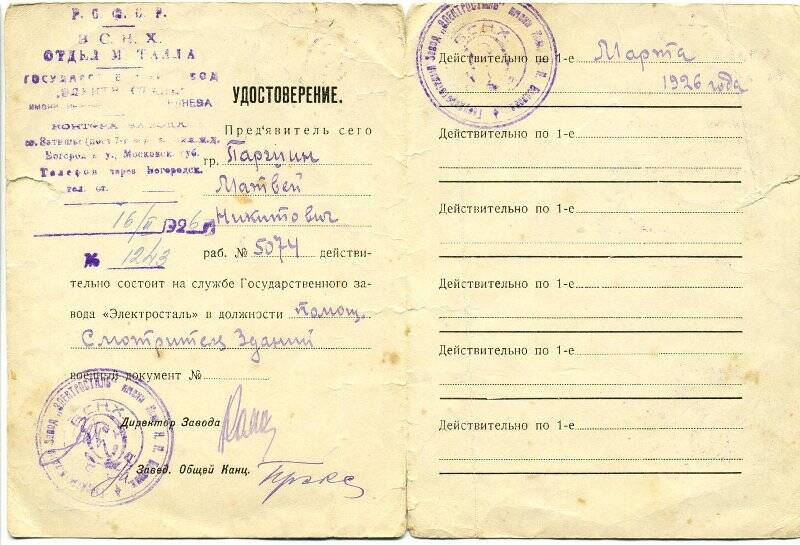 Р. С. Ф. С. Р.
В. С. Н. Х.
ОТДѢЛ МЕТАЛЛА
КОНТОРА ЗАВОДА
Богород. у., Московск. губ.
Телефон через Богородск.
тел. от.
16/II 1926 г.
№ 1243
УДОСТОВЕРЕНИЕ.
Пред'явитель сего
гр. Паргуин
Матвей
Никитович
раб. № 5074 действи-
тельно состоит на службе Государственного за-
вода «Электросталь» в должности помощ.
Смотрителя Зданий
военный документ №
Директор Завода
Завед. Общей Канц.
Действительно по 1-е Марта
1926 года
Действительно по 1-е
Действительно по 1-е
Действительно по 1-е
Действительно по 1-е
Действительно по 1-е
В.С.Н.Х.
В.С.Н.Х.